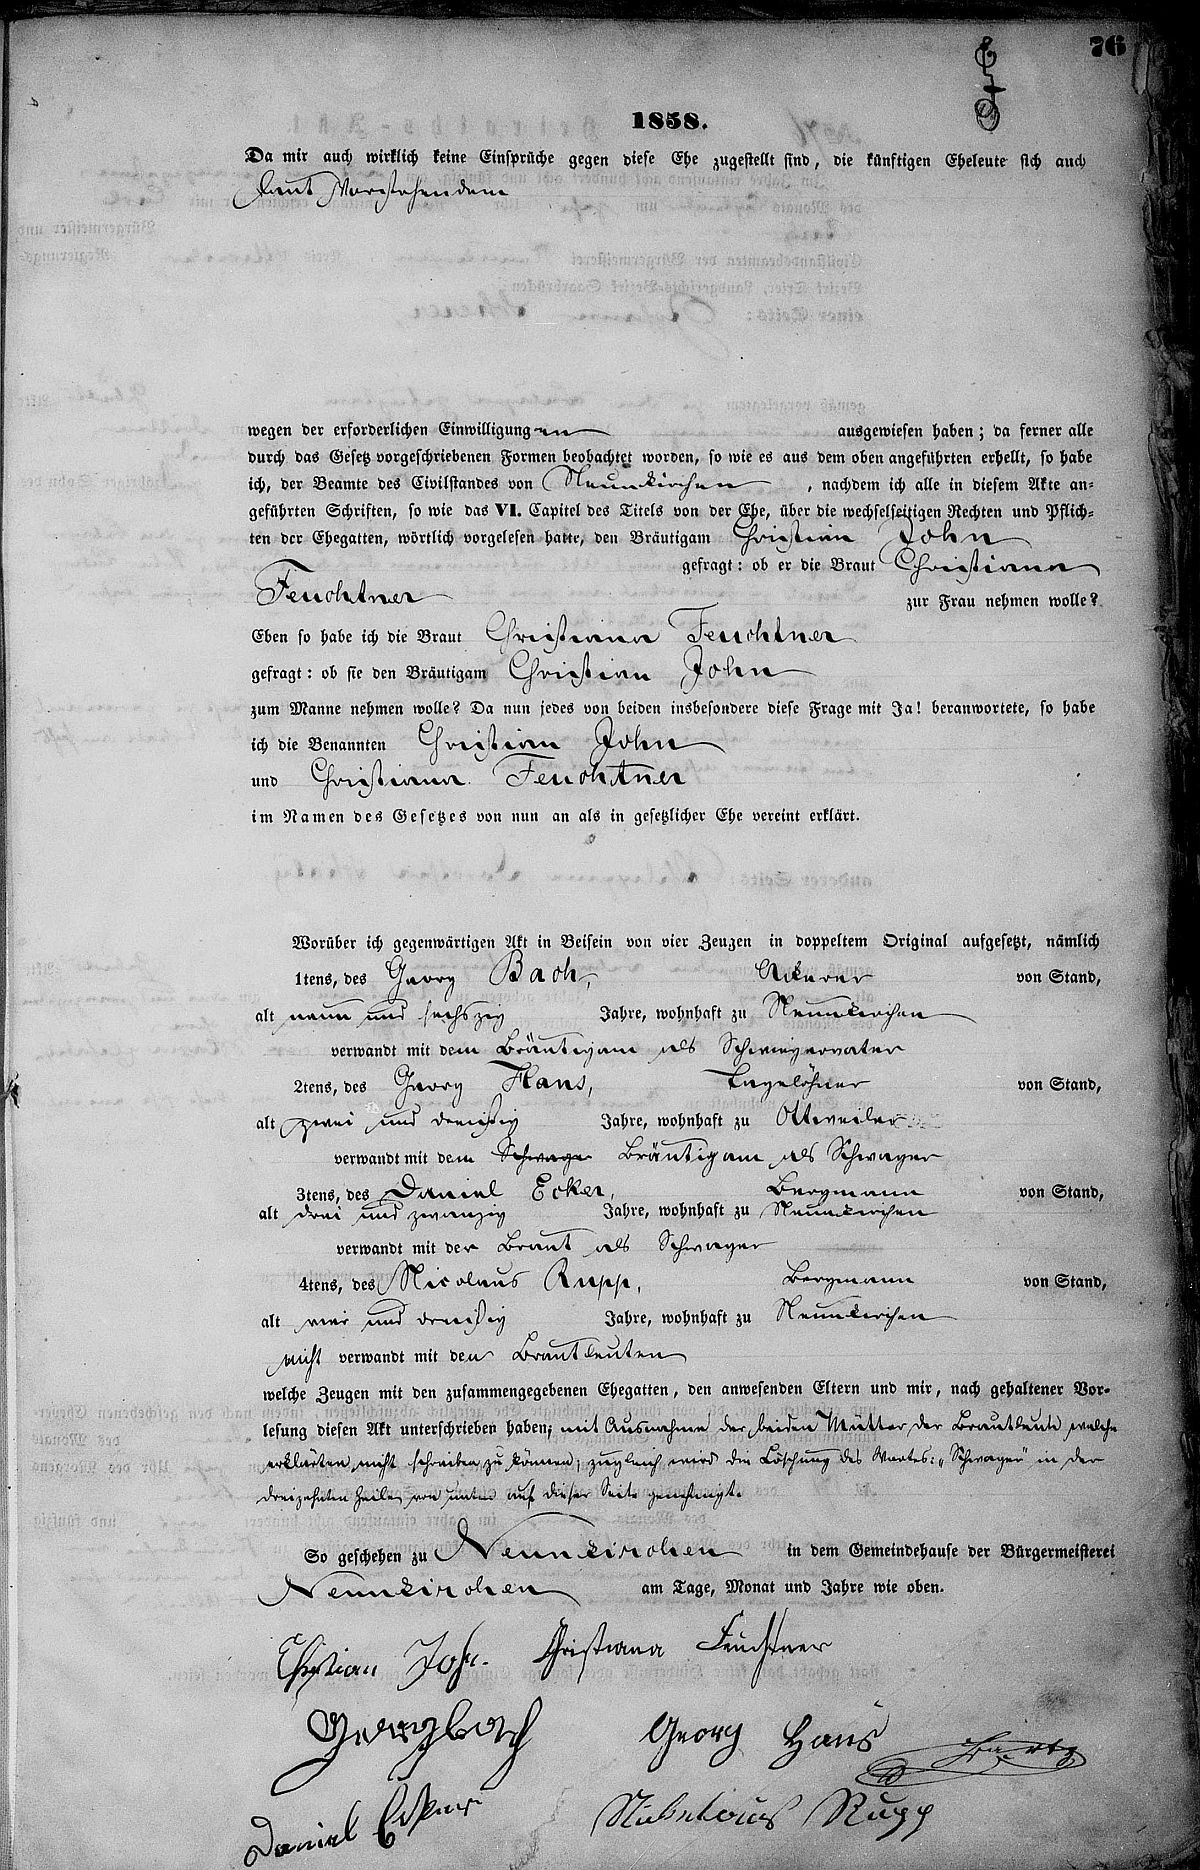 76
1858.
Da mir auch wirklich keine Einsprüche gegen diese Ehe zugestellt sind, die künftigen Eheleute sich auch
laut Vorstehendem
wegen der erforderlichen Einwilligungen ausgewiesen haben; da ferner alle
durch das Gesetz vorgeschriebenen Formen beobachtet worden, so wie es aus dem oben angeführten erhellt, so habe
ich, der Beamte des Civilstandes von Neunkirchen, nachdem ich alle in diesem Akte an-
geführten Schriften, so wie das VI. Capitel des Titels von der Ehe, über die wechselseitigen Rechten und Pflich-
ten der Ehegatten, wörtlich vorgelesen hatte, den Bräutigam Christian John
gefragt: ob er die Braut Christiana
Feuchtner zur Frau nehmen wolle?
Eben so habe ich die Braut Christiana Feuchtner
gefragt: ob sie den Bräutigam Christian John
zum Manne nehmen wolle? Da nun jedes von beiden insbesondere diese Frage mit Ja! beranwortete, so habe
ich die Benannten Christian John
und Christiana Feuchtner
im Namen des Gesetzes von nun an als in gesetzlicher Ehe vereint erklärt.
Worüber ich gegenwärtigen Akt in Beisein von vier Zeugen in doppeltem Original aufgesetzt, nämlich
1tens, des Georg Bach, Ackerer von Stand,
alt neun und sechszig Jahre, wohnhaft zu Neunkirchen
verwandt mit dem Bräutigam als Schwiegervater
2tens, des Georg Hans, Tagelöhner von Stand,
alt zwei und dreißig Jahre, wohnhaft zu Ottweiler
verwandt mit dem Schwager Bräutigam als Schwager
3tens, des Daniel Ecker, Bergmann von Stand,
alt drei und zwanzig Jahre, wohnhaft zu Neunkirchen
verwandt mit der Braut als Schwager
4tens, des Nicolaus Rupp, Bergmann von Stand,
alt vier und dreißig Jahre, wohnhaft zu Neunkirchen
nicht verwandt mit den Brautleuten
welche Zeugen mit den zusammengegebenen Ehegatten, den anwesenden Eltern und mir, nach gehaltener Vor-
lesung diesen Akt unterschrieben haben; mit Ausnahme der beiden Mütter der Brautleute welche
erklärten nicht schreiben zu können; zugleich wird die Löschung des Wortes: „Schwager" in der
dreizehnten Zeile von unten auf dieser Seite genehmigt.
So geschehen zu Neunkirchen in dem Gemeindehause der Bürgermeisterei
Neunkirchen am Tage, Monat und Jahre wie oben.
Christian John. Christiana Feuchtner
Georg bach Georg Hans
Daniel Ecker Nickelaus Rupp